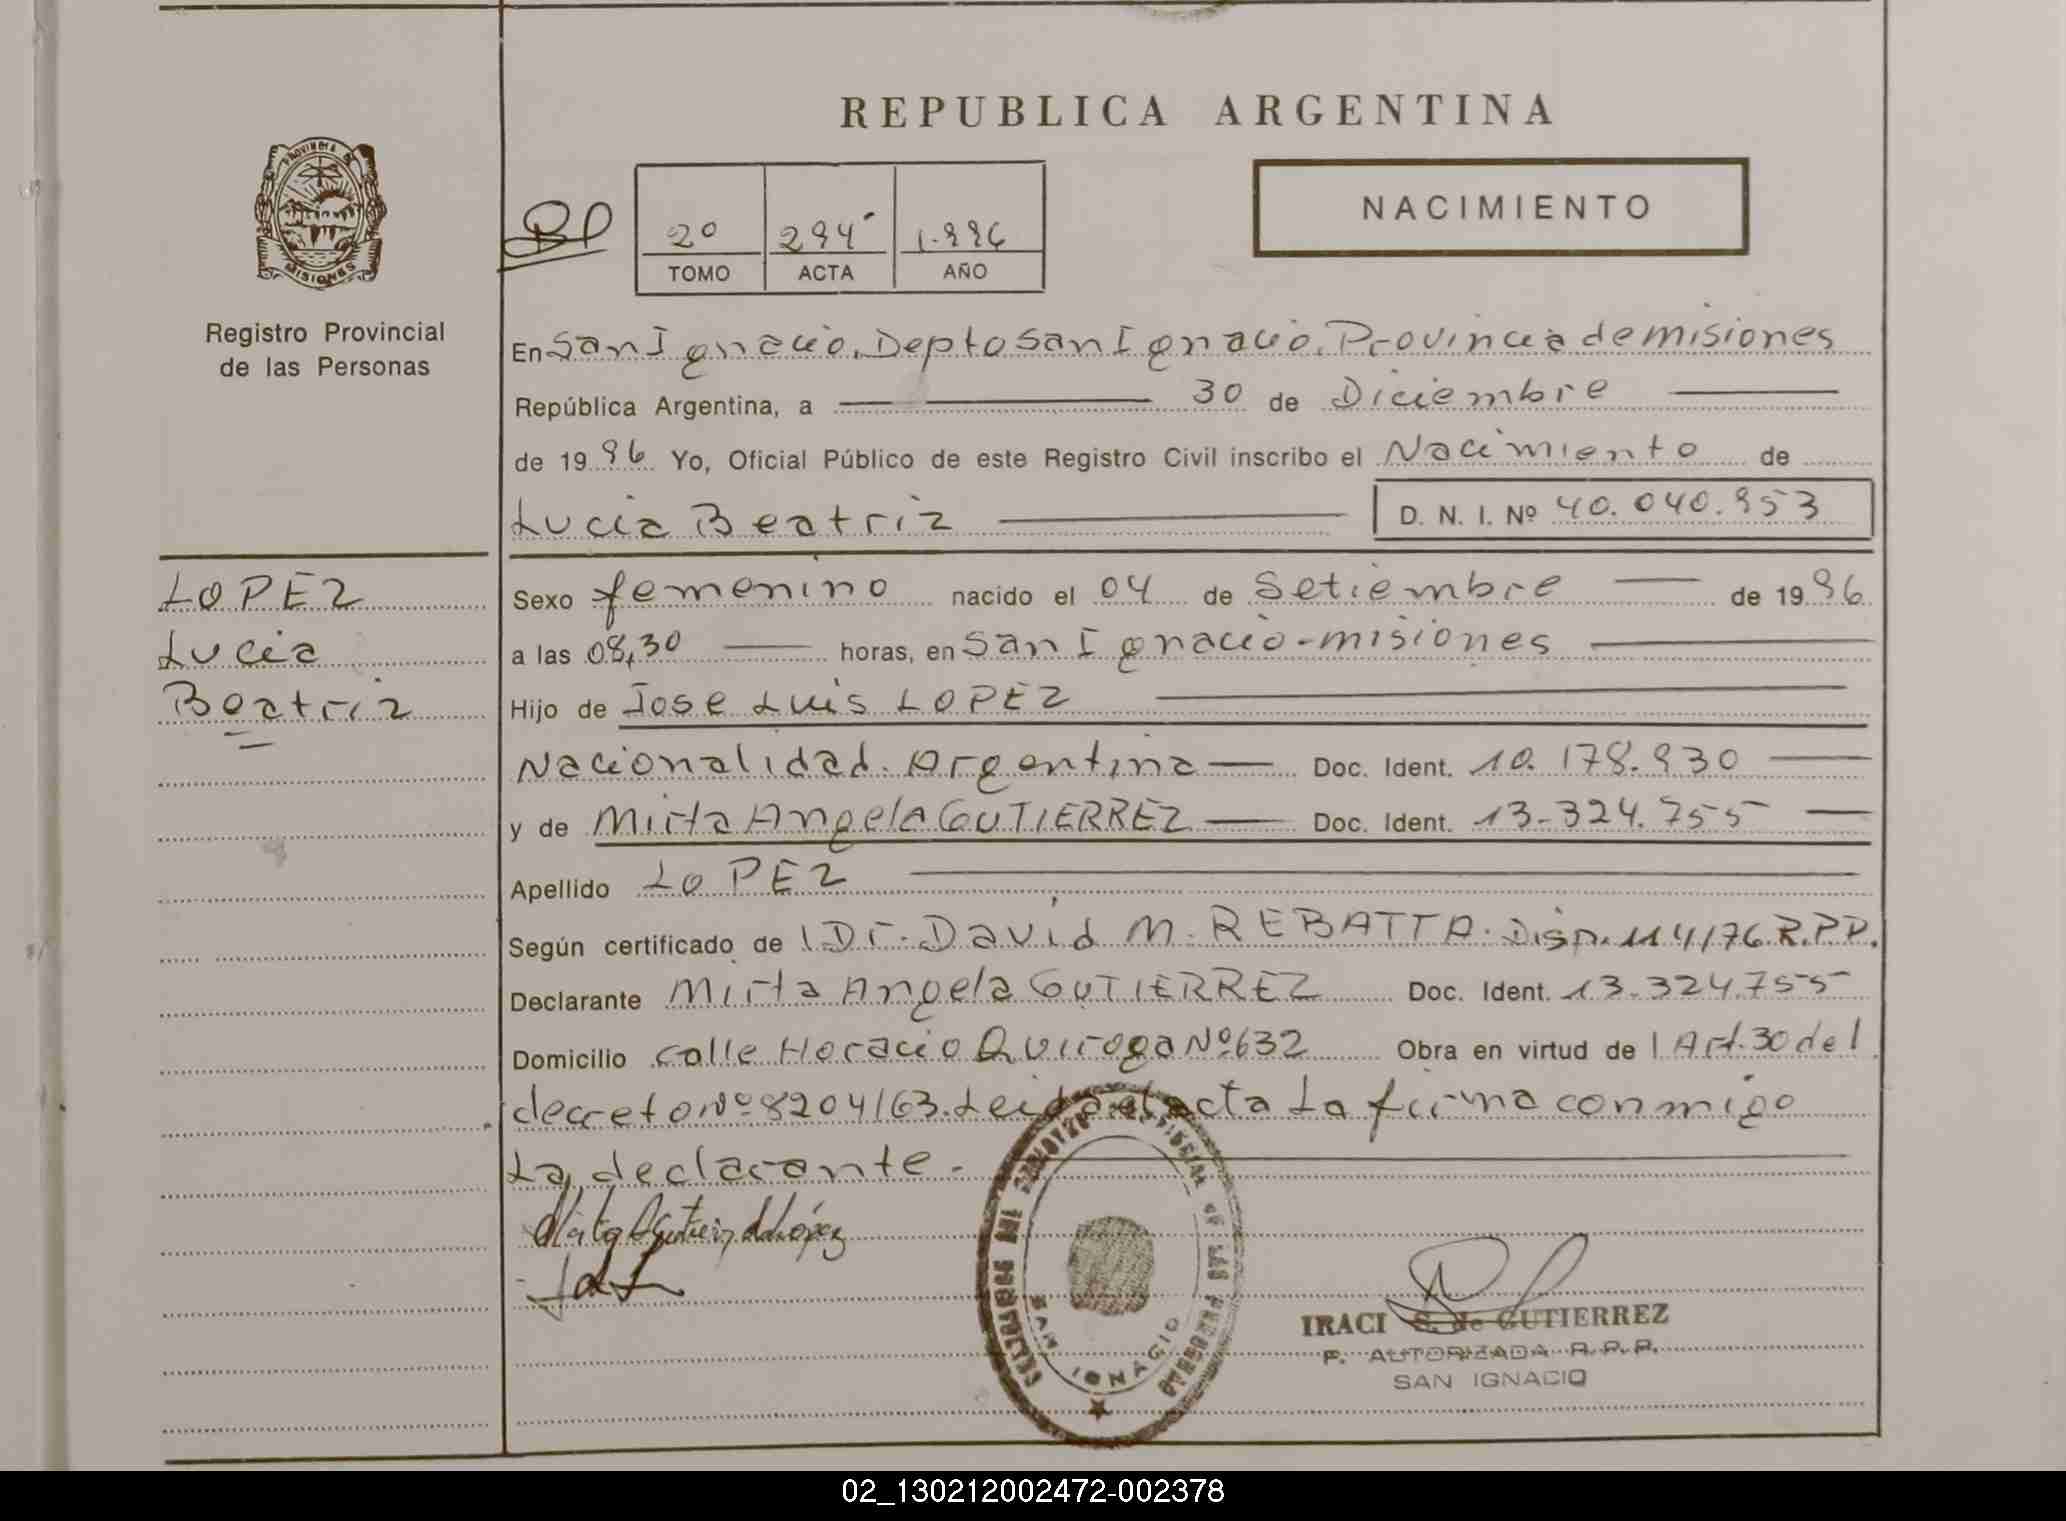 REPUBLICA ARGENTINA
PROVINCIA DE
MISIONES
Registro Provincial
de las Personas
2º 294 1.996
TOMO ACTA AÑO
NACIMIENTO
En San Ignacio, Depto San Ignacio, Provincia de misiones
República Argentina, a 30 de Diciembre
de 1996 Yo, Oficial Público de este Registro Civil inscribo el Nacimiento de
Lucia Beatriz D. N. I. Nº 40.040.953
LOPEZ
Lucia
Beatriz
Sexo femenino nacido el 04 de Setiembre de 1996
a las 08,30 horas, en San Ignacio-misiones
Hijo de Jose Luis LOPEZ
Nacionalidad. Argentina Doc. Ident. 10.178.930
y de Mirta Angela GUTIERREZ Doc. Ident. 13.324.755
Apellido LOPEZ
Según certificado de l Dr. David M. REBATTA. Disp. 114/76 R.P.P.
Declarante Mirta Angela GUTIERREZ Doc. Ident. 13.324.755
Domicilio calle Horacio Quiroga Nº 632 Obra en virtud de l Art. 30 del
decreto Nº 8204/63. Leida el acta La firma conmigo
La declarante.
SAN IGNACIO
IRACI S. de GUTIERREZ
F. AUTORIZADA R.P.P.
SAN IGNACIO
02_130212002472-002378